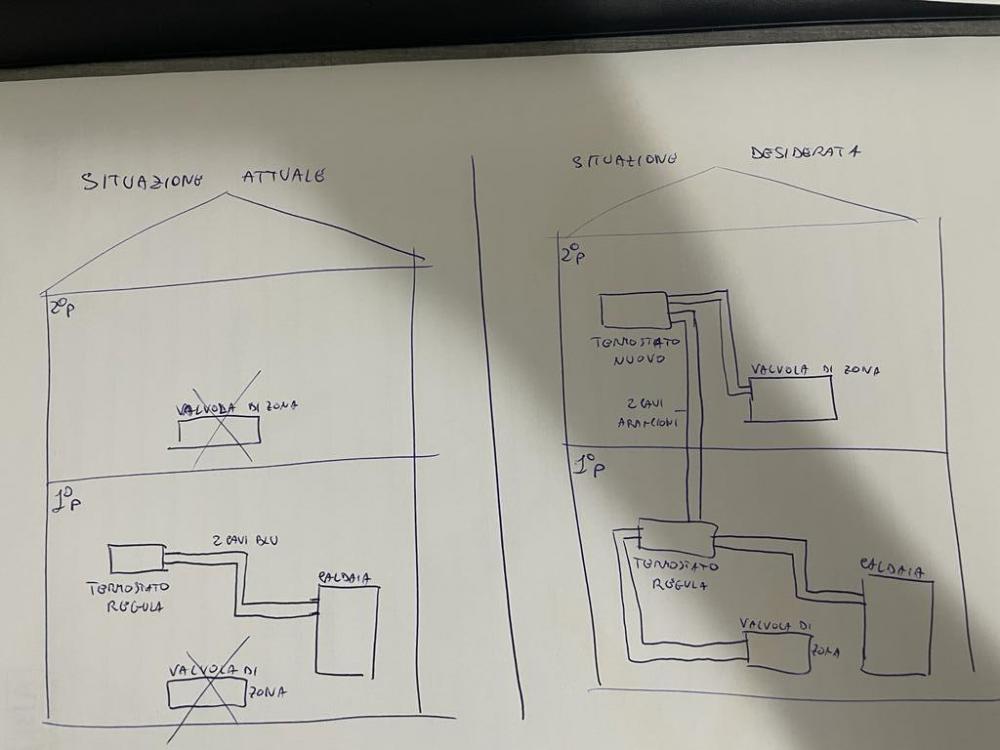 SITUAZIONE ATTUALE
2°P
VALVOLA DI ZONA
1°P
2 CAVI BLU
TERMOSTATO
REGULA
CALDAIA
VALVOLA DI
ZONA
SITUAZIONE DESIDERATA
2°P
TERMOSTATO
NUOVO
VALVOLA DI ZONA
2 CAVI
ARANCIONI
1°P
TERMOSTATO
REGULA
CALDAIA
VALVOLA DI
ZONA